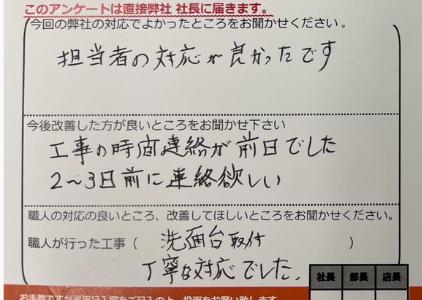 このアンケートは直接弊社 社長に届きます。
今回の弊社の対応でよかったところをお聞かせください。
担当者の対応が良かったです
今後改善した方が良いところをお聞かせ下さい
工事の時間連絡が前日でした
2～3日前に連絡欲しい
職人の対応の良いところ、改善してほしいところをお聞かせください。
職人が行った工事（ 洗面台取付 ）
丁寧な対応でした.
社長 部長 店長